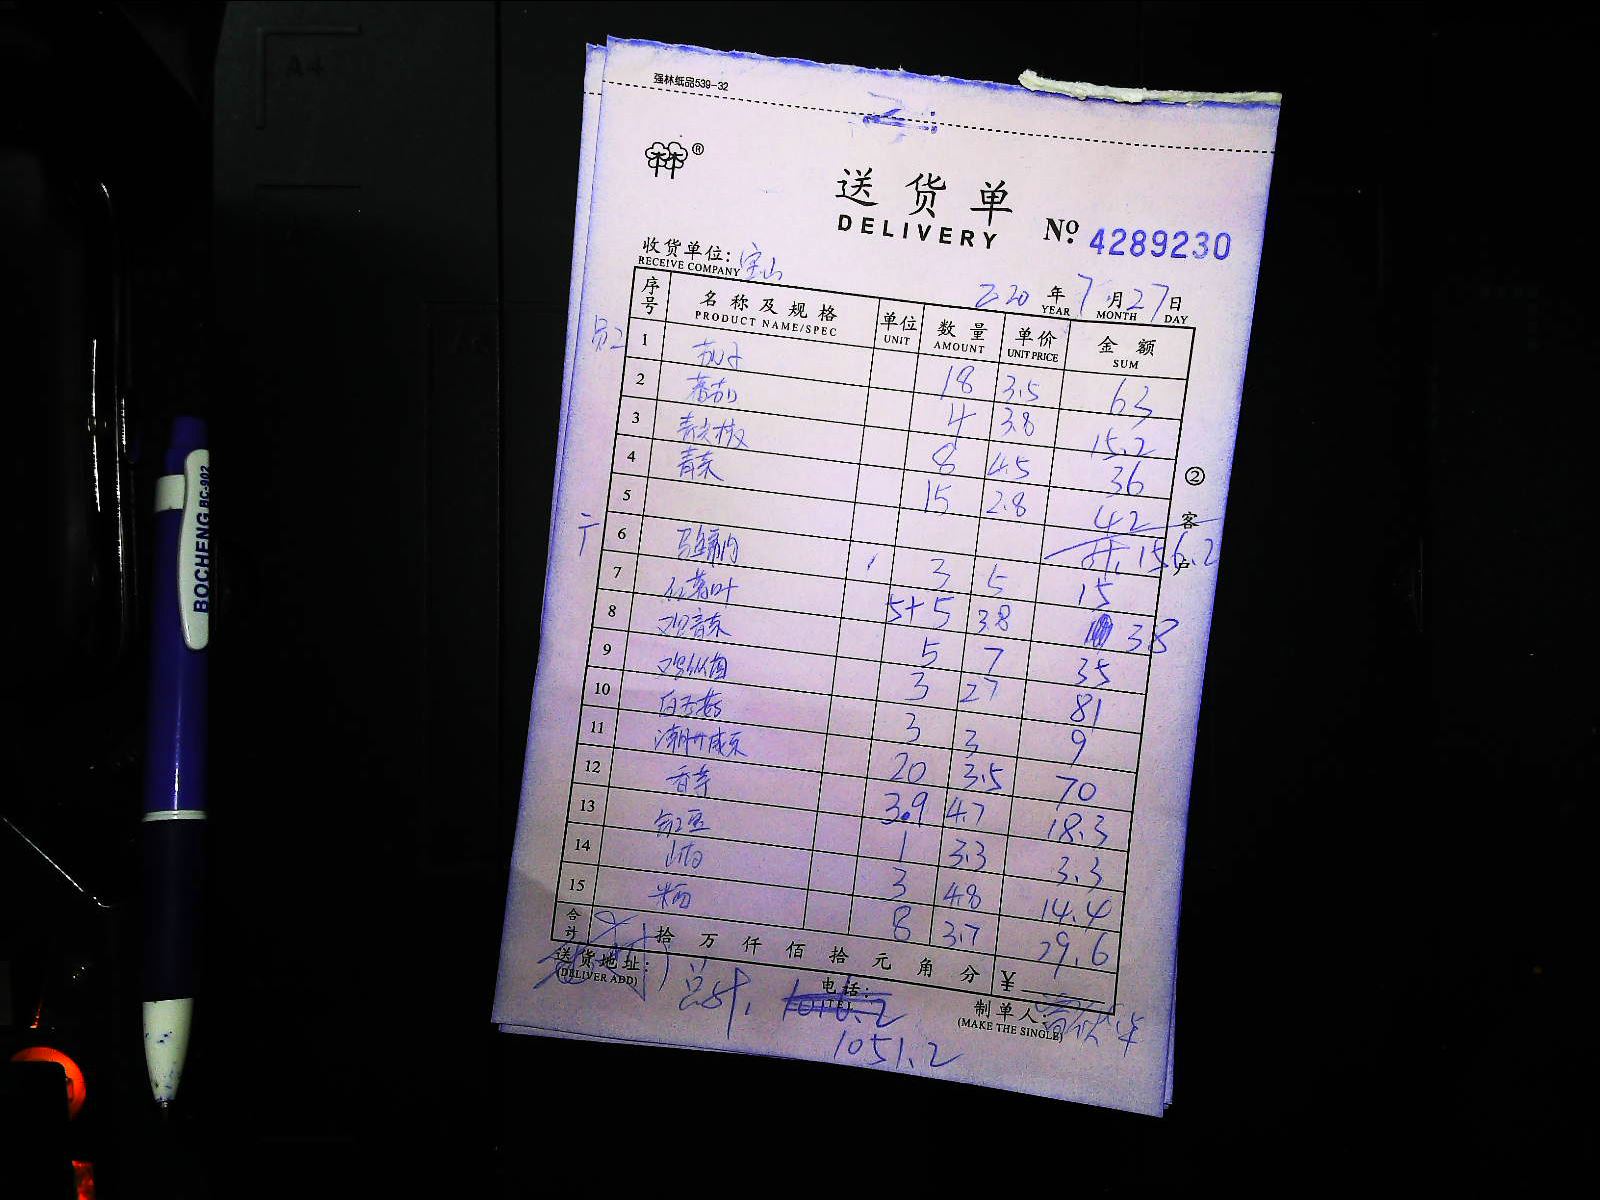 强林纸品539-32
®
送货单
DELIVERY
No. 4289230
收货单位: 宝山
RECEIVE COMPANY
2020 年 7 月 27 日
YEAR MONTH DAY
序号 名称及规格 单位 数量 单价 金额
PRODUCT NAME/SPEC UNIT AMOUNT UNIT PRICE SUM
员工
1 茄子 18 3.5 63
2 蕃茄 4 3.8 15.2
3 青尖椒 8 4.5 36
4 青菜 15 2.8 42
5 计, 156.2
6 3 5 15
7 5+5 3.8 38
8 5 7 35
9 鸡枞菌 3 27 81
10 白玉菇 3 3 9
11 潮州咸菜 20 3.5 70
12 香芋 3.9 4.7 18.3
13 豇豆 1 3.3 3.3
14 3 4.8 14.4
15 8 3.7 29.6
② 客户
合计 拾 万 仟 佰 拾 元 角 分 ¥
送货地址:
(DELIVER ADD)
电话:
(TEL)
制单人:
(MAKE THE SINGLE)
总计, 1051.2
BOCHENG BC-902